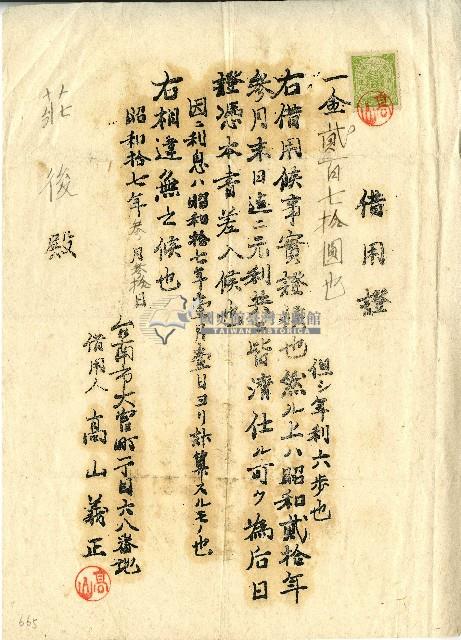 借用證
一金貳百七拾圓也
但シ年利六歩也
右借用候事實證也然ル上ハ昭和貳拾年
參月末日迄ニ元利共皆濟仕ル可ク為后日
證憑本書差入候也
因ニ利息ハ昭和拾七年 月壹日ヨリ計算スルモノ也
右相違無之候也
昭和拾七年參月參拾日
台南市大宮町一丁目六八番地
借用人 高山義正
莊 後 殿
高山
高山
國史館臺灣文獻館
TAIWAN HISTORICA
665